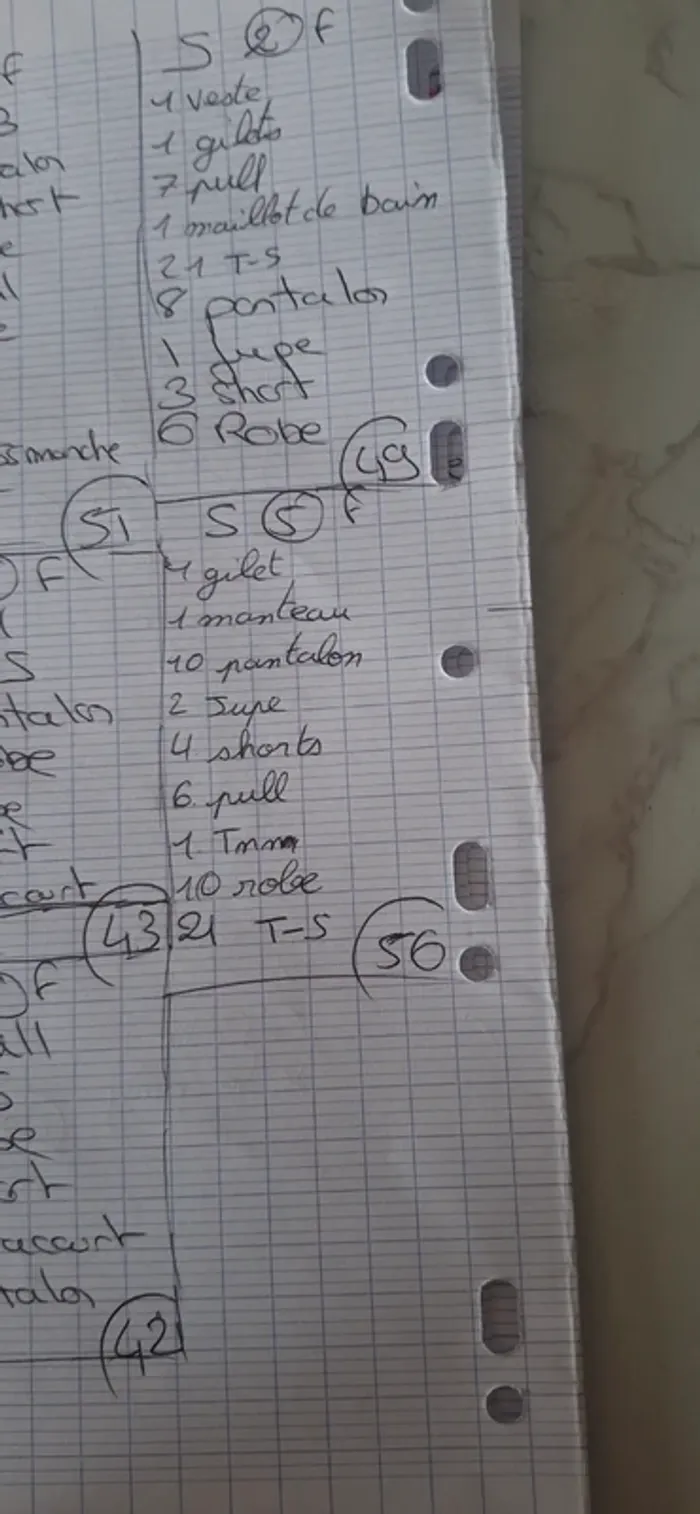 f
3
alon
hort
e
ll
e
manche
51
S 2 F
1 veste
1 gilet
7 pull
1 maillot de bain
21 T-S
8 pantalon
1 Jupe
3 Short
6 Robe
49
F
S
ntalon
be
pe
rt
court
43
S 5 F
1 gilet
1 manteau
10 pantalon
2 Jupe
4 shorts
6 pull
1
10 robe
21 T-S
56
F
ull
S
be
ort
acourt
talon
42